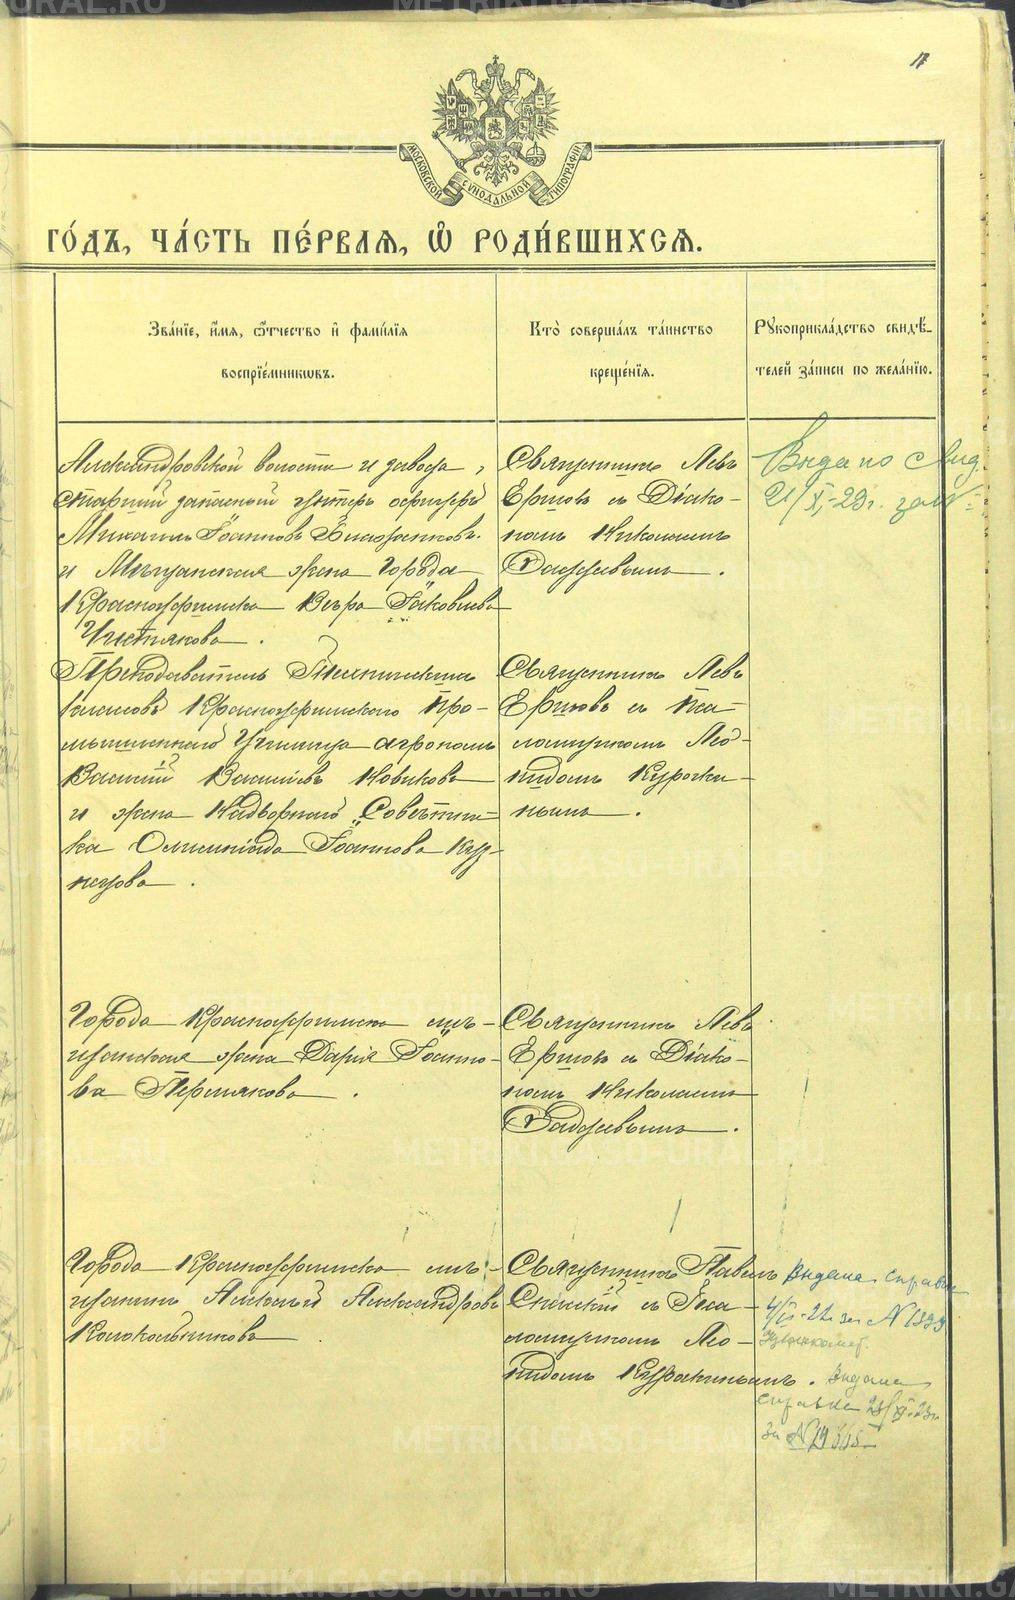 17
МОСКОВСКОЙ СѴНОДАЛЬНОЙ ТИПОГРАФІИ
ГО́ДЪ, ЧА́СТЬ ПЕ́РВАЯ, Ѽ РОДИ́ВШИХСЯ.
Зва́нїе, и҆́мя, ѻ҆́тчество и҆ фами́лїя
воспрїе́мниковъ.
Кто̀ соверша́лъ та́инство
креще́нїя.
Рꙋкоприкла́дство свидѣ́-
телей за́писи по жела́нїю.
Александровской волости и завода,
старшій запасной унтеръ офицеръ
Михаилъ Іоанновъ
и Мѣщанская жена города
Красноуфимска Вѣра Іаковлева
Чистякова.
Священникъ Левъ
Ершовъ съ Діако-
номъ Николаемъ
Выдано свид.
21/XI-23г. за №
Преподаватель Техническихъ
классовъ Красноуфимскаго Про-
мышленнаго Училища агрономъ
Василій Васильевъ Новиковъ
и жена Надворнаго Совѣтни-
ка Олимпіада Іоаннова Куз-
нецова.
Священникъ Левъ
Ершовъ съ Пса-
ломщикомъ Лео-
нидомъ Курочки-
нымъ.
Города Красноуфимска мѣ-
щанская жена Дарія Іоанно-
ва Пермякова.
Священникъ Левъ
Ершовъ съ Діако-
номъ Николаемъ
Города Красноуфимска мѣ-
щанинъ Алексѣй Александровъ
Колокольниковъ
Священникъ Павелъ
съ Пса-
ломщикомъ Лео-
нидомъ
Выдана справка
за №1399
Выдана
справка 23/XI-23г.
за №
METRIKI.GASO-URAL.RU